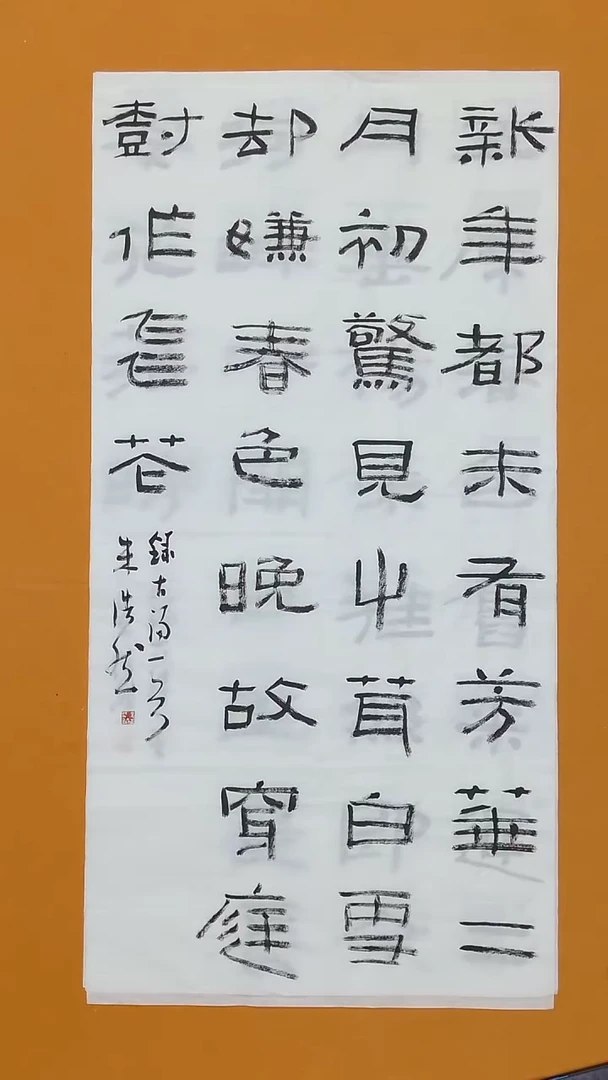 新年都未有芳華二
月初驚見屮芽白雪
却嫌春色晚故穿庭
樹作飛花
錄古詩一首
朱浩然